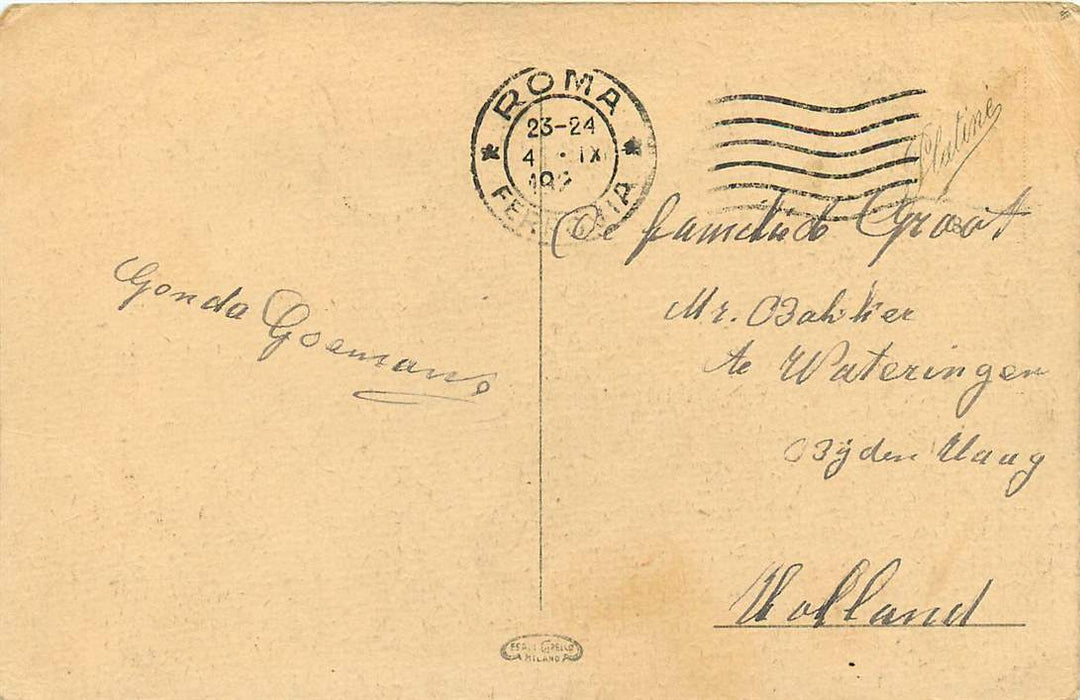 ROMA
23-24
4 · IX
192
FERROVIA
Platine
De familie Groot
Mr. Bakker
te Wateringen
Bijden Haag
Holland
Gonda Goemans
MILANO